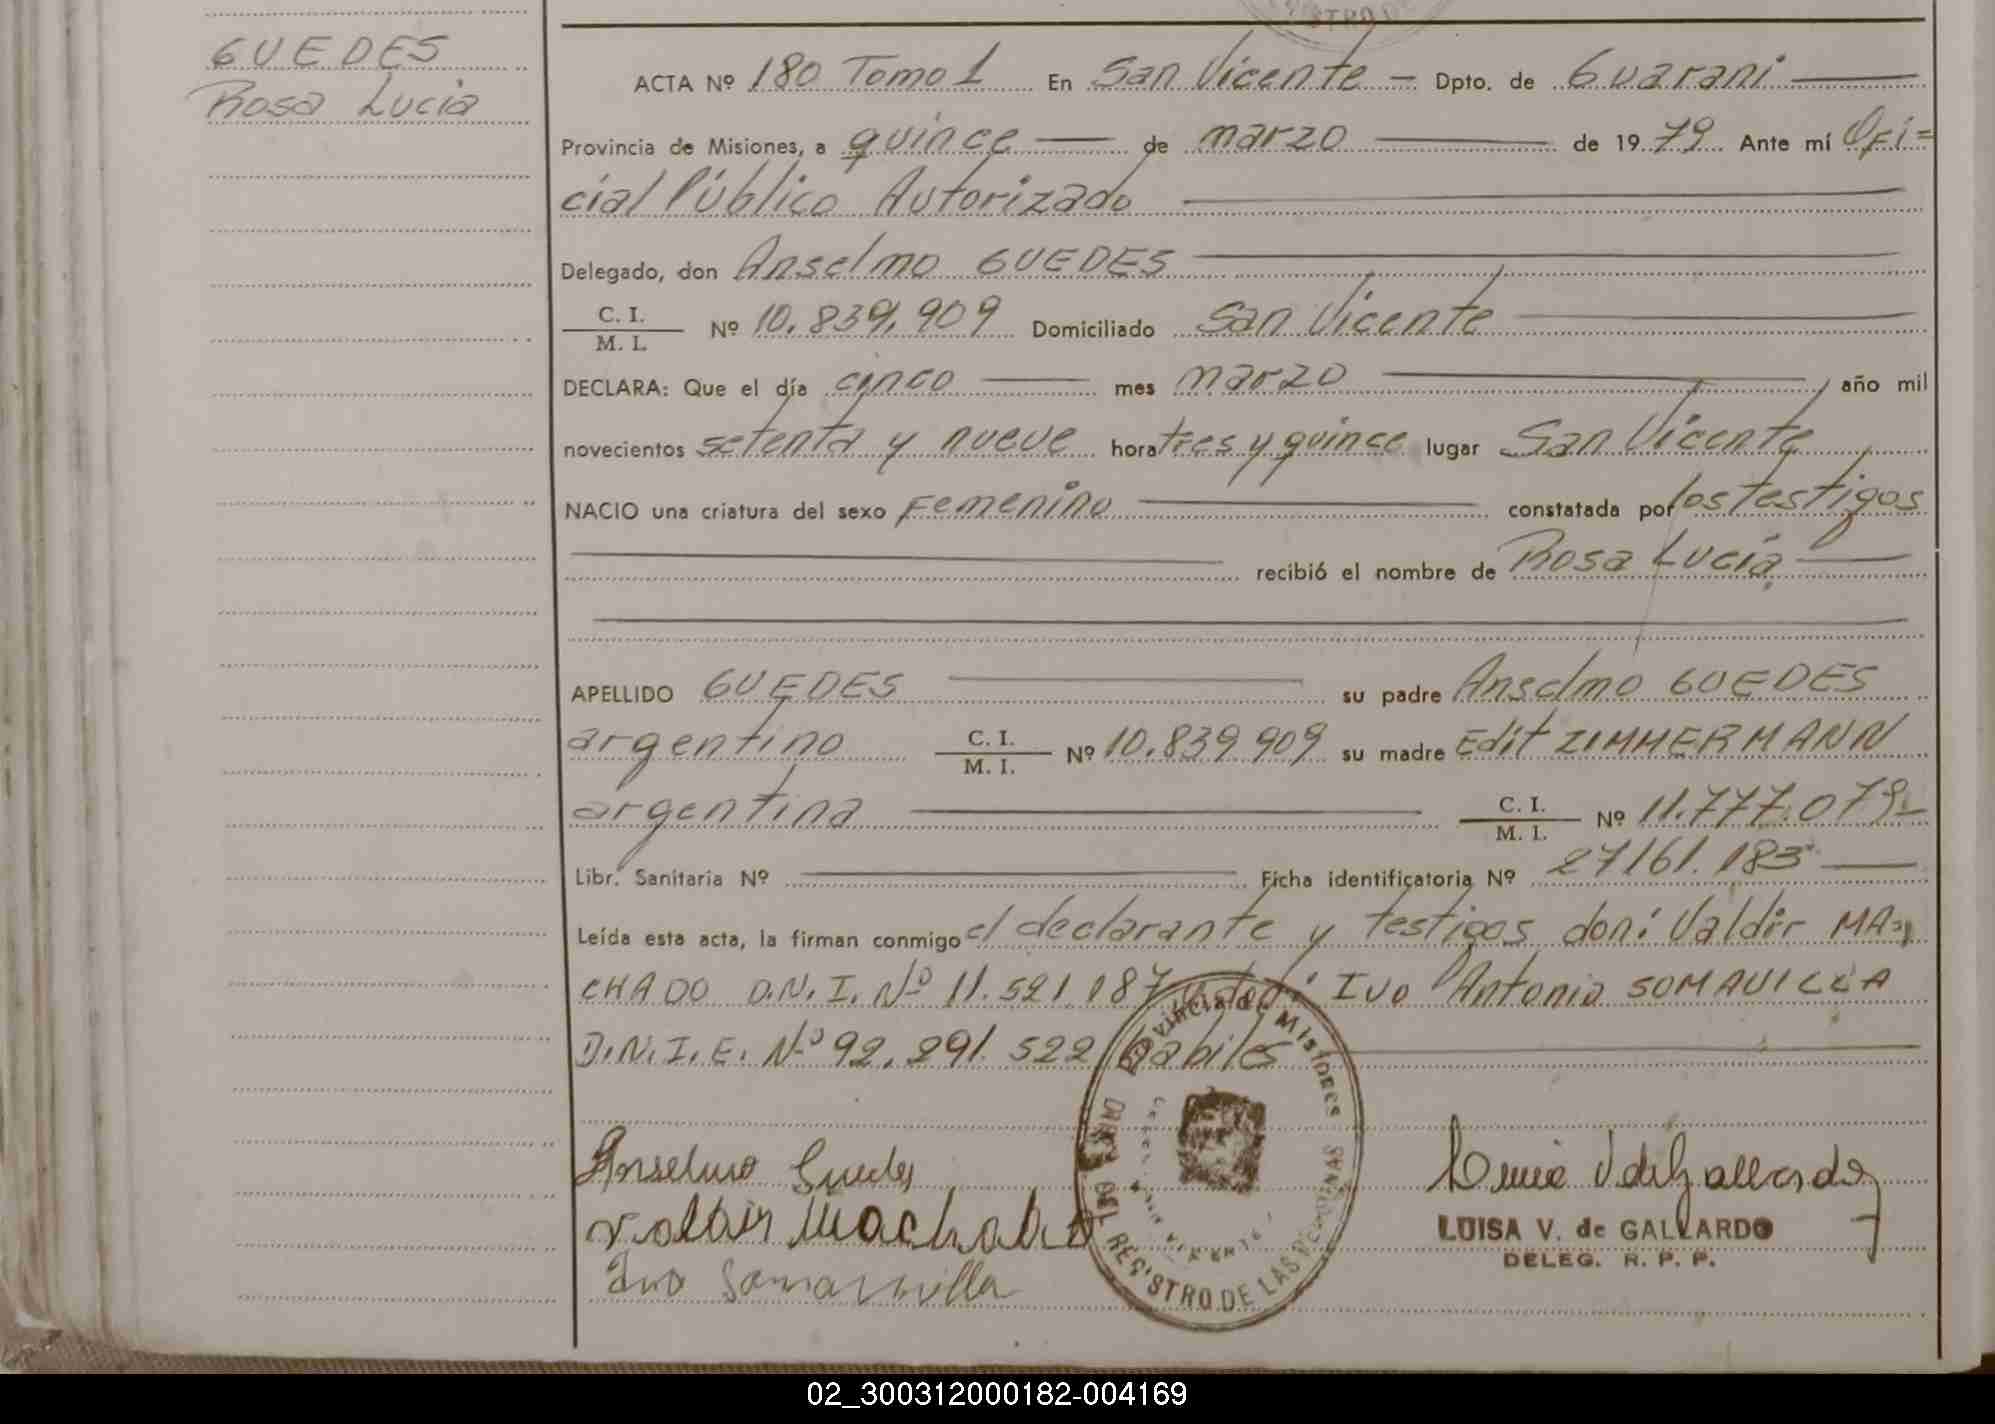 GUEDES
Rosa Lucia
ACTA Nº 180 Tomo 1 En San Vicente Dpto. de Guarani
Provincia de Misiones, a quince de marzo de 1979 Ante mí Ofi=
cial Público Autorizado
Delegado, don Anselmo GUEDES
C. I.
M. I. Nº 10.839.909 Domiciliado San Vicente
DECLARA: Que el día cinco mes marzo año mil
novecientos setenta y nueve hora tres y quince lugar San Vicente
NACIO una criatura del sexo Femenino constatada por los testigos
recibió el nombre de Rosa Lucia
APELLIDO GUEDES su padre Anselmo GUEDES
argentino C. I. M. I. Nº 10.839.909 su madre Edit ZIMMERMANN
argentina C. I. M. I. Nº 11.777.079-
Libr. Sanitaria Nº Ficha identificatoria Nº 27161.183
Leída esta acta, la firman conmigo el declarante y testigos don: Valdir MA=
CHADO D.N.I. Nº 11.521.187 Ivo Antonio SOMAVILLA
D.N.I.E. Nº 92.291.522 habiles
Provincia de Misiones
DIREC. DEL REGISTRO DE LAS PERSONAS
Anselmo Guedes
Valdir Machado
Ivo Somavilla
Luisa V de Gallardo
LUISA V. de GALLARDO
DELEG. R. P. P.
02_300312000182-004169